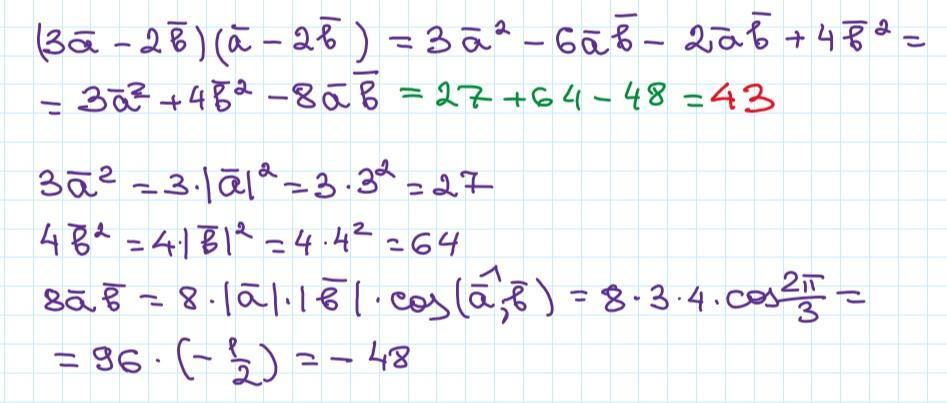 (3a̅ - 2b̅)(a̅ - 2b̅) = 3a̅² - 6a̅b̅ - 2a̅b̅ + 4b̅² =
= 3a̅² + 4b̅² - 8a̅b̅ = 27 + 64 - 48 = 43
3a̅² = 3·|a̅|² = 3·3² = 27
4b̅² = 4·|b̅|² = 4·4² = 64
8a̅b̅ = 8·|a̅|·|b̅|·cos(a̅,^b̅) = 8·3·4·cos 2π/3 =
= 96·(-1/2) = -48